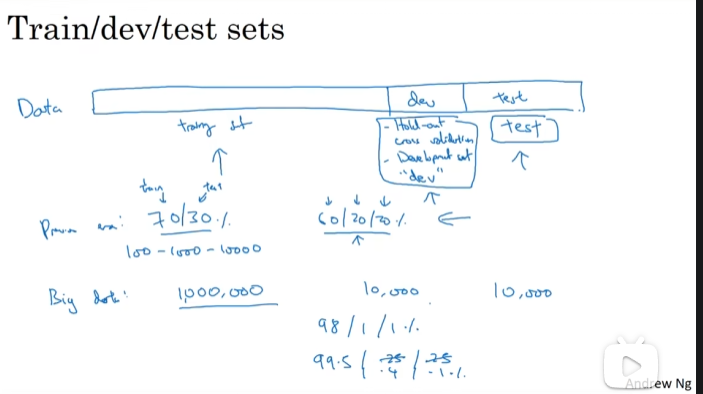 Train/dev/test sets
Data
dev
test
training set
- Hold-out
cross validation
- Development set
"dev"
test
train test
Previous era: 70/30% 60/20/20%
100-1000-10000
Big data: 1,000,000 10,000 10,000
98/1/1%
99.5/.25/.25
.4 .1%
Andrew Ng